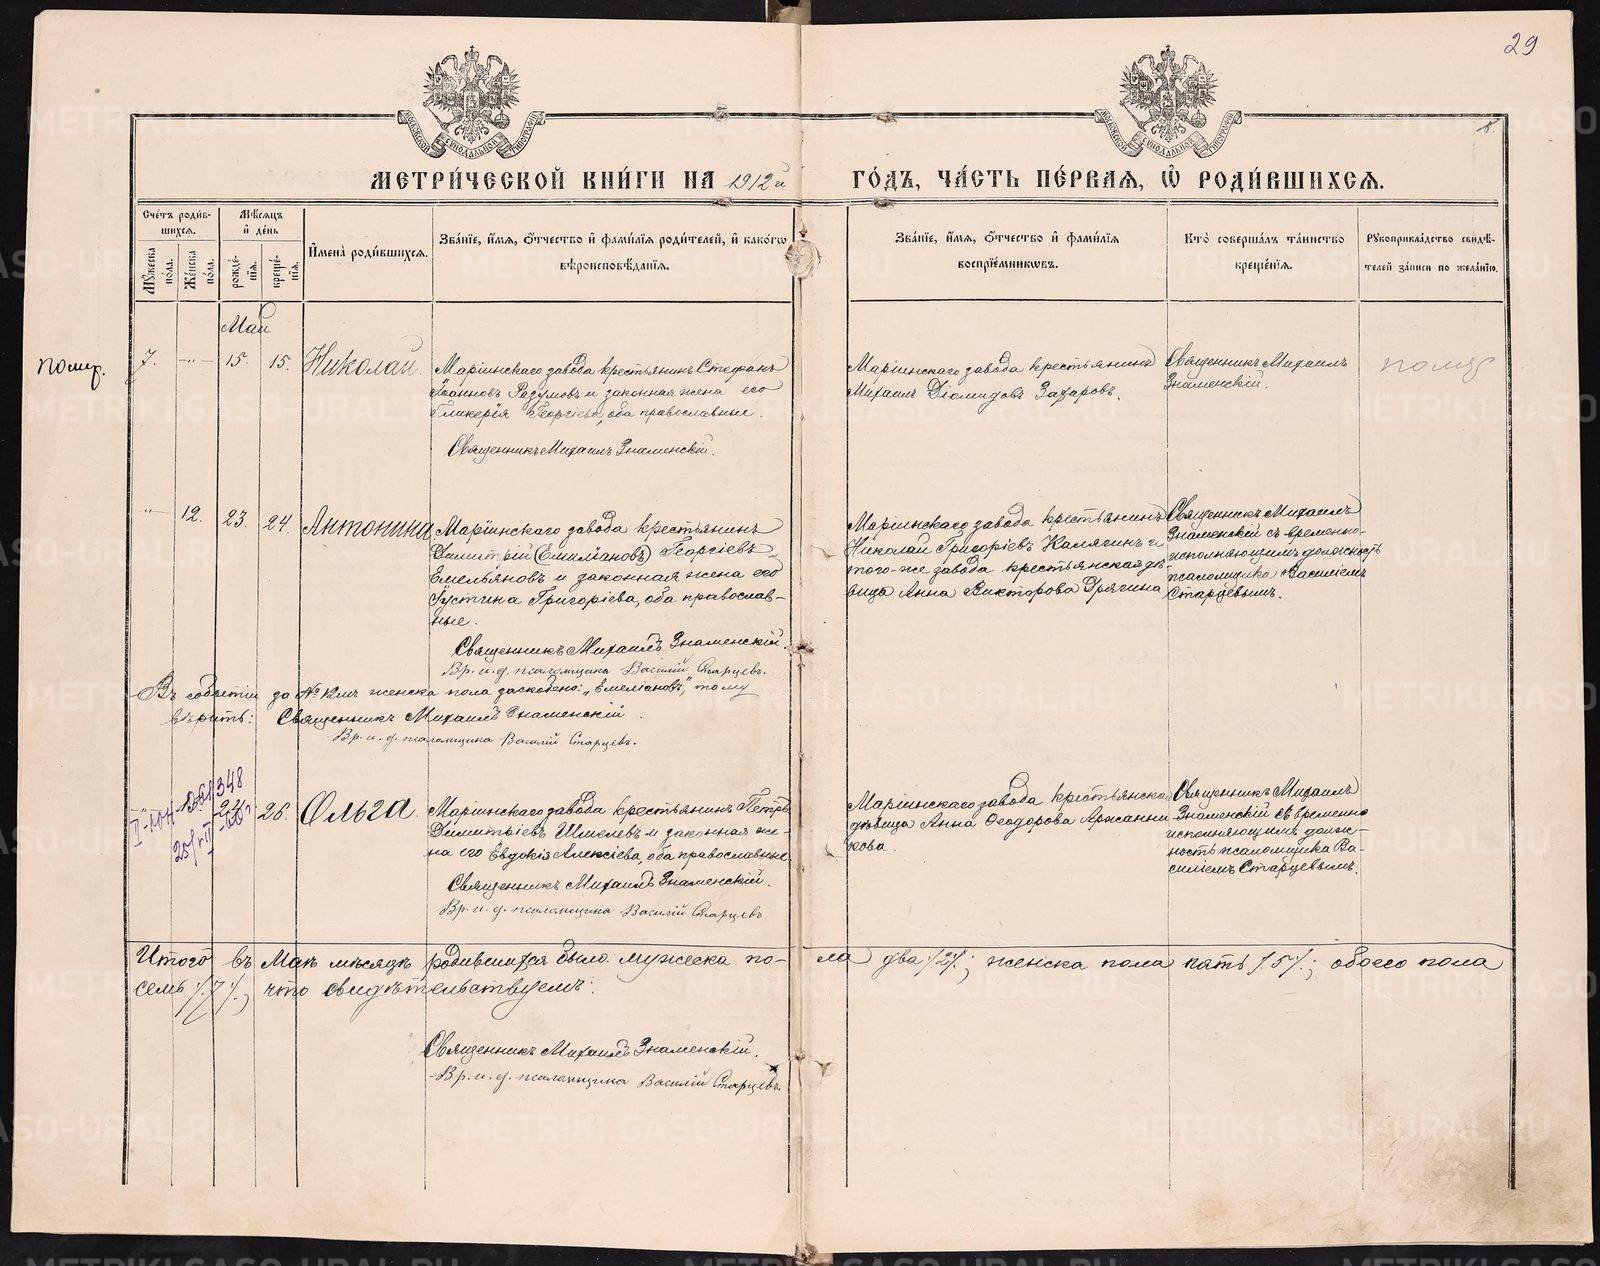 29
МЕТРИ́ЧЕСКОЙ КНИ́ГИ НА 1912й ГО́ДЪ, ЧА́СТЬ ПЕ́РВАЯ, Ѡ РОДИ́ВШИХСѦ.
Сче́тъ роди́вшихся.
Мꙋ́жеска по́ла.
Же́нска по́ла.
Мѣ́сяцъ и де́нь
рожде́нїя.
креще́нїя.
И҆мена̀ роди́вшихсѧ.
Зва́нїе, и҆́мѧ, ѻ҆́тчество и҆ фами́лїѧ роди́телей, и҆ како́гѡ вѣроисповѣ́данїѧ.
Зва́нїе, и҆́мѧ, ѻ҆́тчество и҆ фами́лїѧ воспрїе́мникѡвъ.
Кто̀ соверша́лъ та́инство креще́нїѧ.
Рꙋкоприкла́дство свидѣ́телей за́писи по жела́нїю.
Май
помр.
7. —"— 15. 15. Николай.
Маріинскаго завода крестьянинъ Стефанъ
Іоанновъ Разумовъ и законная жена его
Гликерія Георгіева, оба православные.
Священникъ Михаилъ Знаменскій.
Маріинскаго завода крестьянинъ
Михаилъ Діомидовъ Захаровъ.
Священникъ Михаилъ
Знаменскій.
помр
" 12. 23. 24. Антонина
Маріинскаго завода крестьянинъ
Димитрій (Емиліановъ) Георгіевъ
Емельяновъ и законная жена его
Іустина Григоріева, оба православ-
ные.
Священникъ Михаилъ Знаменскій.
Вр. и. д. псаломщика Василій Старцевъ.
Маріинскаго завода крестьянинъ
Николай Григоріевъ Калягинъ и
того-же завода крестьянская дѣ-
вица Анна Викторова
Священникъ Михаилъ
Знаменскій съ временно-
исполняющимъ должность
псаломщика Василіемъ
Старцевымъ.
Въ событіи за № 12мъ женска пола заскоблено: „Емеліановъ", тому
вѣрить: Священникъ Михаилъ Знаменскій.
Вр. и. д. псаломщика Василій Старцевъ.
26. Ольга.
Маріинскаго завода крестьянинъ Петръ
Димитріевъ Шмелевъ и законная же-
на его Евдокія Алексіева, оба православные
Священникъ Михаилъ Знаменскій.
Вр. и. д. псаломщика Василій Старцевъ
Маріинскаго завода крестьянская
дѣвица Анна Ѳеодорова
Священникъ Михаилъ
Знаменскій съ временно
исполняющимъ долж-
ность псаломщика Ва-
силіемъ Старцевымъ.
Итого въ Маѣ мѣсяцѣ родившихся было: мужеска по- ла два /2/.; женска пола пять /5/.; обоего пола
семь /7/., что свидѣтельствуемъ:
Священникъ Михаилъ Знаменскій.
Вр. и. д. псаломщика Василій Старцевъ.
METRIKI.GASO-URAL.RU